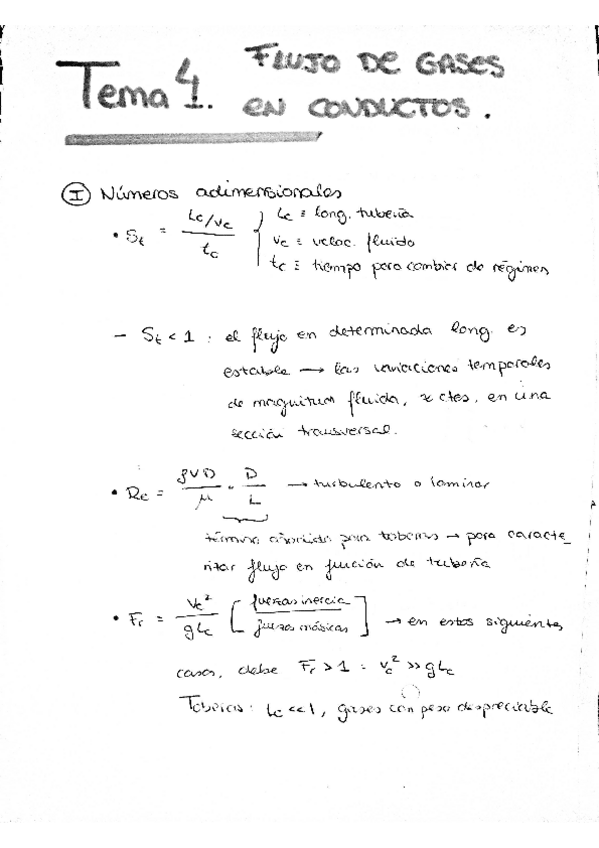 Tema 4. FLUJO DE GASES
EN CONDUCTOS.
I Números adimensionales
• St = (Lc/vc) / tc { Lc ≡ long. tubería
vc ≡ veloc. fluido
tc ≡ tiempo para cambiar de régimen
- St < 1 : el flujo en determinada long. es
estable → las variaciones temporales
de magnitud fluida, ≈ ctes, en una
sección transversal.
• Re = ρVD/μ · D/L → turbulento o laminar
término añadido para toberas → para caracte_
rizar flujo en función de tubería
• Fr = vc²/gLc [fuerzas inercia / fuerzas másicas] → en estos siguientes
casos, debe Fr > 1 : vc² >> gLc
Toberas: Lc << 1, gases con peso despreciable